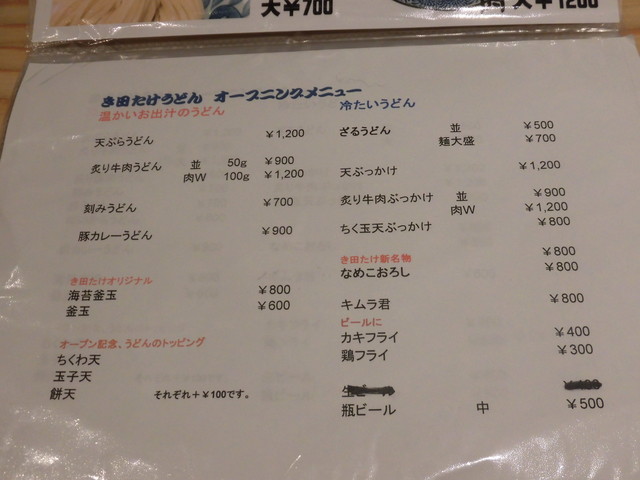 大￥700
大￥1200
き田たけうどん オープニングメニュー
温かいお出汁のうどん
天ぷらうどん ￥1,200
炙り牛肉うどん 並 50g ￥900
肉W 100g ￥1,200
刻みうどん ￥700
豚カレーうどん ￥900
き田たけオリジナル
海苔釜玉 ￥800
釜玉 ￥600
オープン記念、うどんのトッピング
ちくわ天
玉子天
餅天 それぞれ＋￥100です。
冷たいうどん
ざるうどん 並 ￥500
麺大盛 ￥700
天ぶっかけ ￥1,200
炙り牛肉ぶっかけ 並 ￥900
肉W ￥1,200
ちく玉天ぶっかけ ￥800
き田たけ新名物 ￥800
なめこおろし ￥800
キムラ君 ￥800
ビールに
カキフライ ￥400
鶏フライ ￥300
瓶ビール 中 ￥500